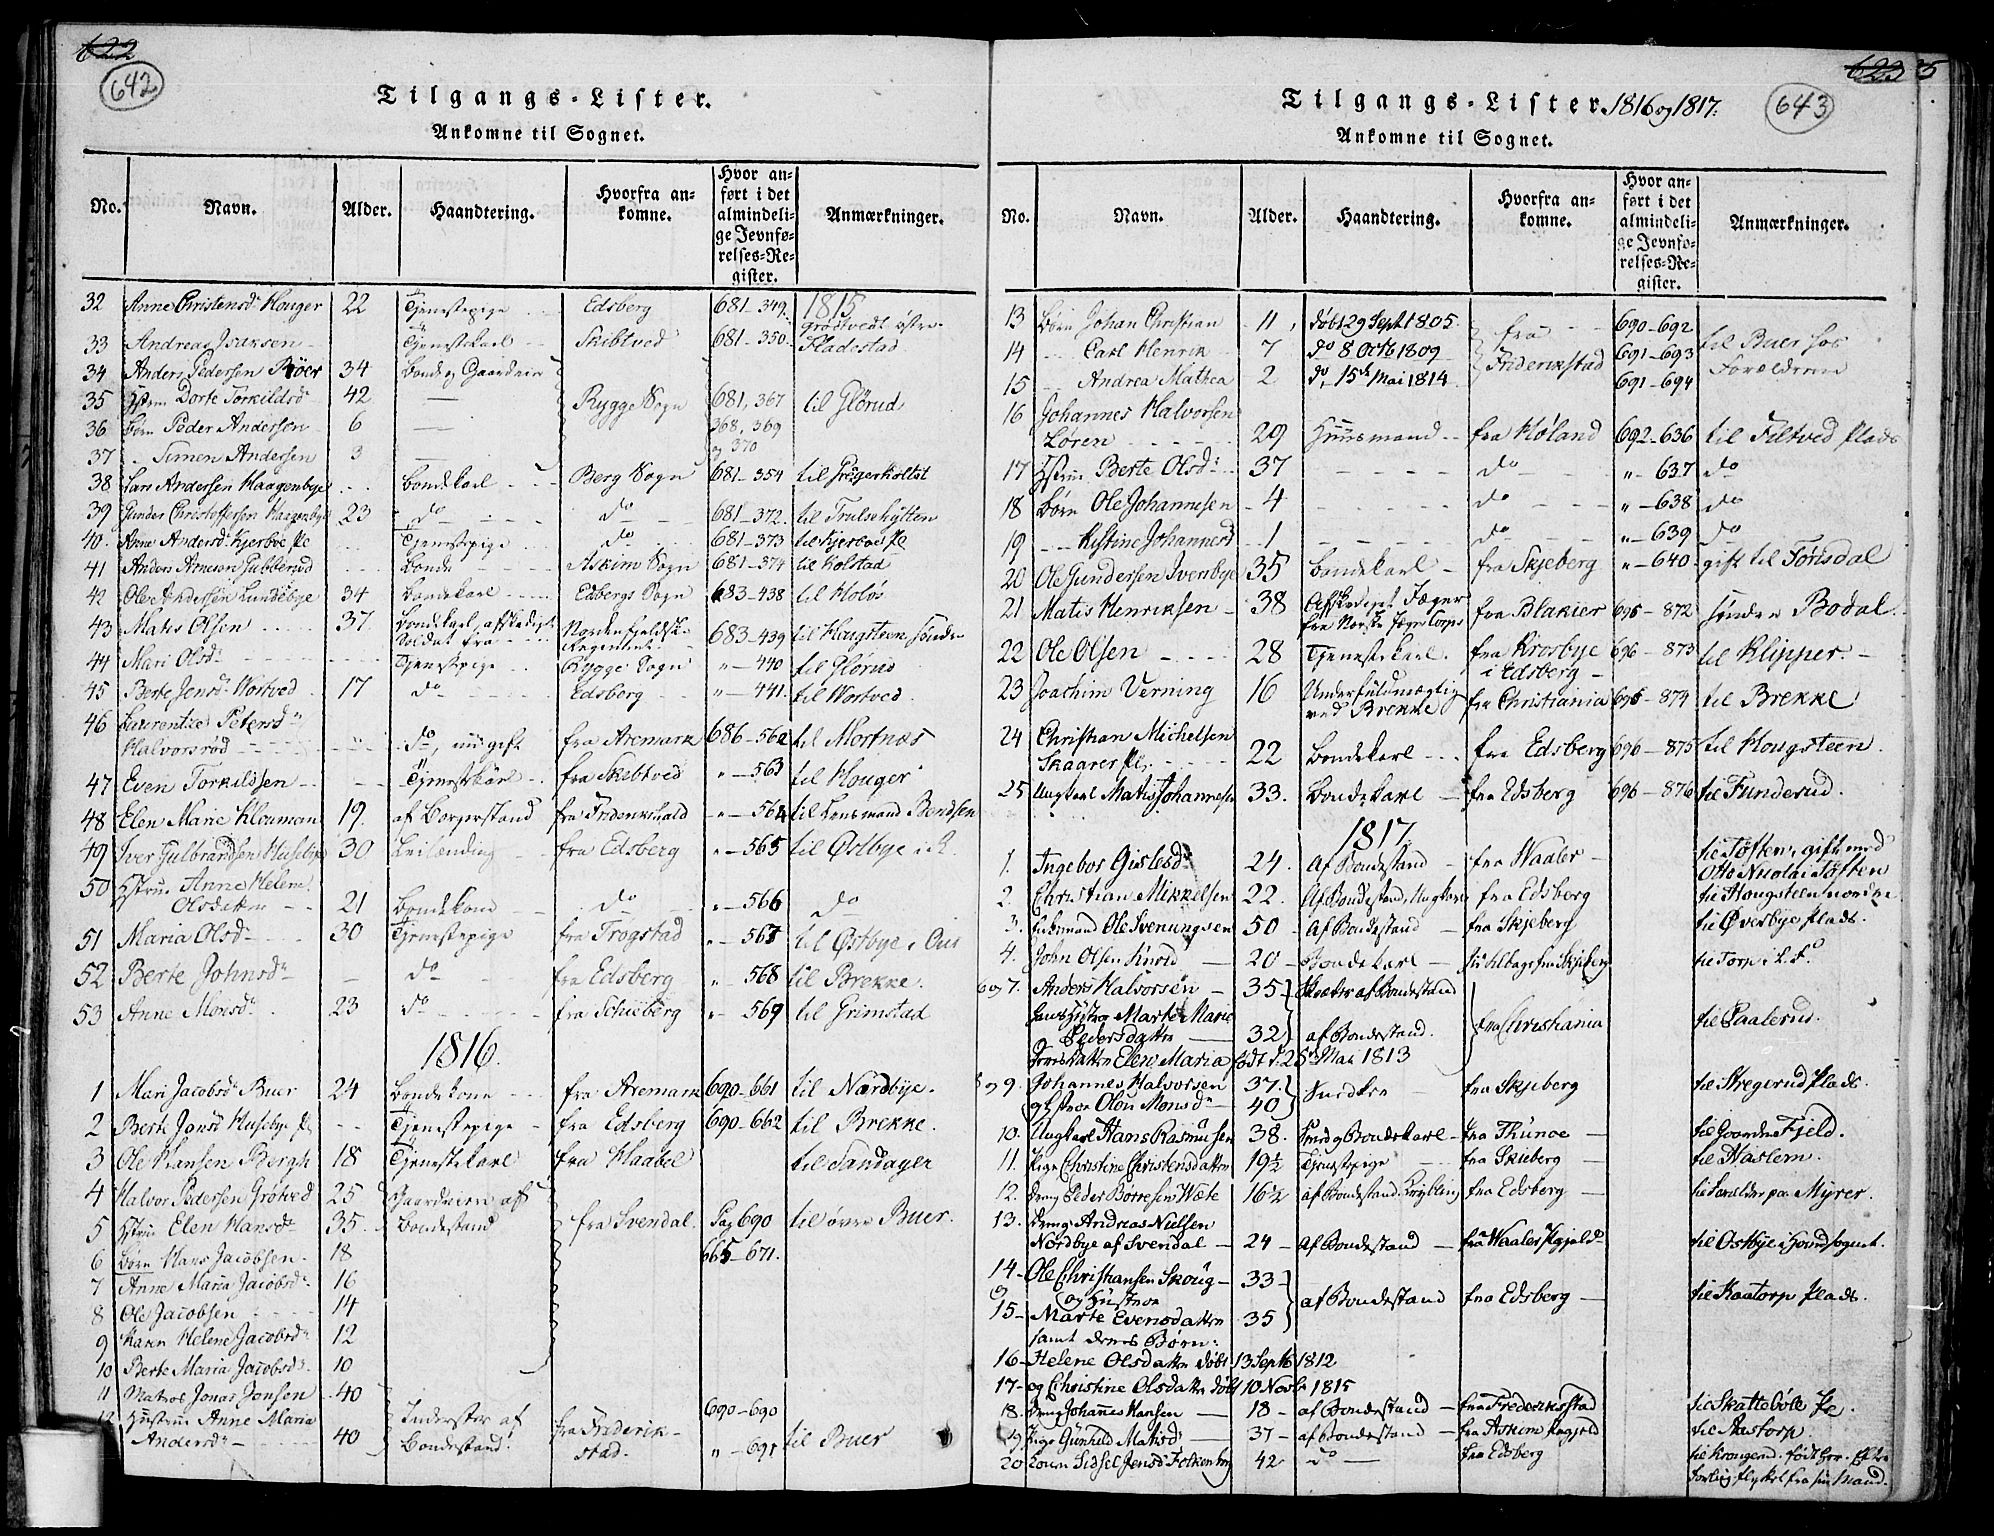 622
642
Tilgangs-Lister.
Ankomne til Sognet.
No. Navn. Alder. Haandtering. Hvorfra ankomne. Hvor anført i det almindelige Jevnførelses-Register. Anmærkninger.
32 Anne Christensd. Houger 22 Tjenestepige Edsberg 681-349. 1815
33 Andreas Isaksen Tjenestekarl Skibtved 681-350. Grødtvedt østre Fladestad
34 Anders Pedersen Röer 34 Bonde og Gaardeier
35 Hstru Dorte Torkildsd 42 — Rygge Sogn 681, 367 til Glörud
36 Børn Peder Andersen 6 — 368, 369
37 - Simen Andersen 3 — og 370
38 Lars Andersen Haagenbye Bondekarl Berg Sogn 681-354
39 Gunder Christoffersen Haagenbye 23 do do 681-372. til Trulsehytten
40. Anne Andersd. Kjerboe Pl Tjenestepige do 681-373 til Kjerboe Pl
41 Anders Arnesen Gubberud Bonde Askim Sogn 681-374 til Kolstad
42 Ole Andersen Lundebye 34 Bondekarl Edbergs Sogn 683-438
43 Mats Olsen 37. Bondekarl, afskediget Soldat fra Nordenfjeldske Regiment 683-439 til Hougsteen søndre
44 Mari Olsd. Tjenestepige Rygge Sogn " - 440 til Glørud
45 Berte Jensd. Wortved 17 do Edsberg " - 441. til Wortved.
46 Laurentze Petersd.
Halvorsrød do, nu gift fra Aremark 686-562 til Mortnes
47 Even Torkildsen Tjenestekarl fra Skibtved " - 563 til Houger
48 Elen Marie Klouman 19. af Borgerstand fra Friderikshald " - 564 til Lensmand Bendsen
49 Iver Gulbrandsen Husebye 30 Leilænding fra Edsberg " - 565 til Østbye i R.
50 Hstru Anne Helene
Olsdatter 21 Bondekone do " - 566 do
51 Maria Olsd. 30 Tjenestepige fra Trøgstad " - 567 til Østbye i Ous
52 Berte Johnsd. — do fra Edsberg " - 568 til Brekke.
53 Anne Monsd. 23 do fra Schieberg " - 569 til Grimstad
1816.
1 Mari Jacobsd. Buer 24 Bondekone fra Aremark 690-661 til Nordbye.
2 Berte Jansd. Husebye Pl Tjenestepige fra Edsberg 690-662 til Brekke.
3 Ole Hansen Bergh 18 Tjenestekarl fra Haabel til Sandager
4 Halvor Pedersen Grötved 25 Gaardeiere af
5 Hstru Elen Hansd. 35. Bondestand fra Svendal. Pag 690 til øvre Buer.
6 Børn Hans Jacobsen 18 665-671.
7 Anne Maria Jacobsd. 16
8 Ole Jacobsen 14
9 Karen Helene Jacobsd. 12
10 Berte Maria Jacobsd. 10
11 Matros Jonas Jonsen 40 690-690
12 Hustrue Anne Maria
Andersd. 40 Inderster af Bondestand. fra Friderikstad. " - 691 til Buer
623
643
Tilgangs-Lister. 1816 og 1817.
Ankomne til Sognet.
No. Navn. Alder. Haandtering. Hvorfra ankomne. Hvor anført i det almindelige Jevnførelses-Register. Anmærkninger.
13 Børn Johan Christian 11, døbt 29 Sept. 1805. 690-692
14 Carl Henrik 7 do 8 Octb 1809 fra Friderikstad 691-693 til Buer hos
15 Andrea Mathea 2 do, 15de Mai 1814 691-694 Forældrene
16 Johannes Halvorsen
Løren 29 Huusmand fra Høland 692-636 til Filtved Plads
17 Hstrue Berte Olsd. 37 do " - 637 do
18 Børn Ole Johannesen 4 do " - 638 do
19 Kistine Johannesd 1 do " - 639 do
20 Ole Gundersen Ivenbye 35 Bondekarl fra Skjeberg " - 640 gift til Førisdal
21 Matis Henriksen 38 Afskediget Jæger fra Norske Jæger Corps fra Blakier 695-872 søndre Bodal.
22 Ole Olsen 28 Tjenestekarl. fra Krosbye i Edsberg 696-873 til Klipper.
23 Joachim Verning 16 Underfuldmægtig ved Brekke fra Christiania 696-874 til Brekke
24 Christian Michelsen
Skaarer Pl. 22 Bondekarl fra Edsberg 696-875 til Hougsteen.
25 Ungkarl Matis Johannesen 33. Bondekarl fra Edsberg 696-876 til Funderud.
1817.
1. Ingebor Gislesd. 24. Af Bondestand fra Waaler til Töften, gift med Otto Nicolai Töften
2. Christian Mikkelsen 22. Af Bondestand, Ungkarl fra Edsberg til Hougsteen nordre
3. Enkemand Ole Svenungsen 50 Af Bondestand fra Skjeberg til Øverbye Plads.
4. John Olsen 20 Bondekarl tilbage fra Skjeberg til Torp
6 og 7. Anders Halvorsen 35 af Bondestand
hans Hustro Marte Marie
Pedersdatter 32 af Bondestand. fra Christiania til Paalerud.
Elen Maria født d. 25de Mai 1813
8 og 9. Johannes Halvorsen 37. Snedker fra Skjeberg til Stregerud Plads.
og Hstroe Olou Monsd. 40
10. Ungkarl Hans Rasmusen 38. Smed og Bondekarl fra Thunoe til Gaarden Fjeld.
11. Pige Christine Christensdatter 19½ Tjenestepige fra Skieberg til Haslem.
12. Dreng Peder Börresen Wæte 16½ af Bondestand fra Edsberg til Forælder paa Myrer.
13. Dreng Andreas Nielsen
Nordbye af Svendal 24 af Bondestand fra Waaler Præstegjeld til Ostbye i Hovedsognet.
14 Ole Christiansen Skoug 33
og og Hustroe af Bondestand fra Edsberg til Kaatorp Plads.
15 Marte Evensdatter 35
samt deres Børn:
16 Helene Olsdatter döbt 13 Septb 1812
17 og Christine Olsdatter döbt 10 Novb 1815
18. Dreng Johannes Hansen 18 af Bondestand fra Frederiksstad til Skattebøle Pl.
19 Pige Gunhild Matisd. 37 af Bondestand fra Askim Præstegjeld til Aastorp.
20 Konen Sidsel Jensd. Folkenborg 42 do fra Edsberg til Krogend. født her
flyttet fra sin Mand.